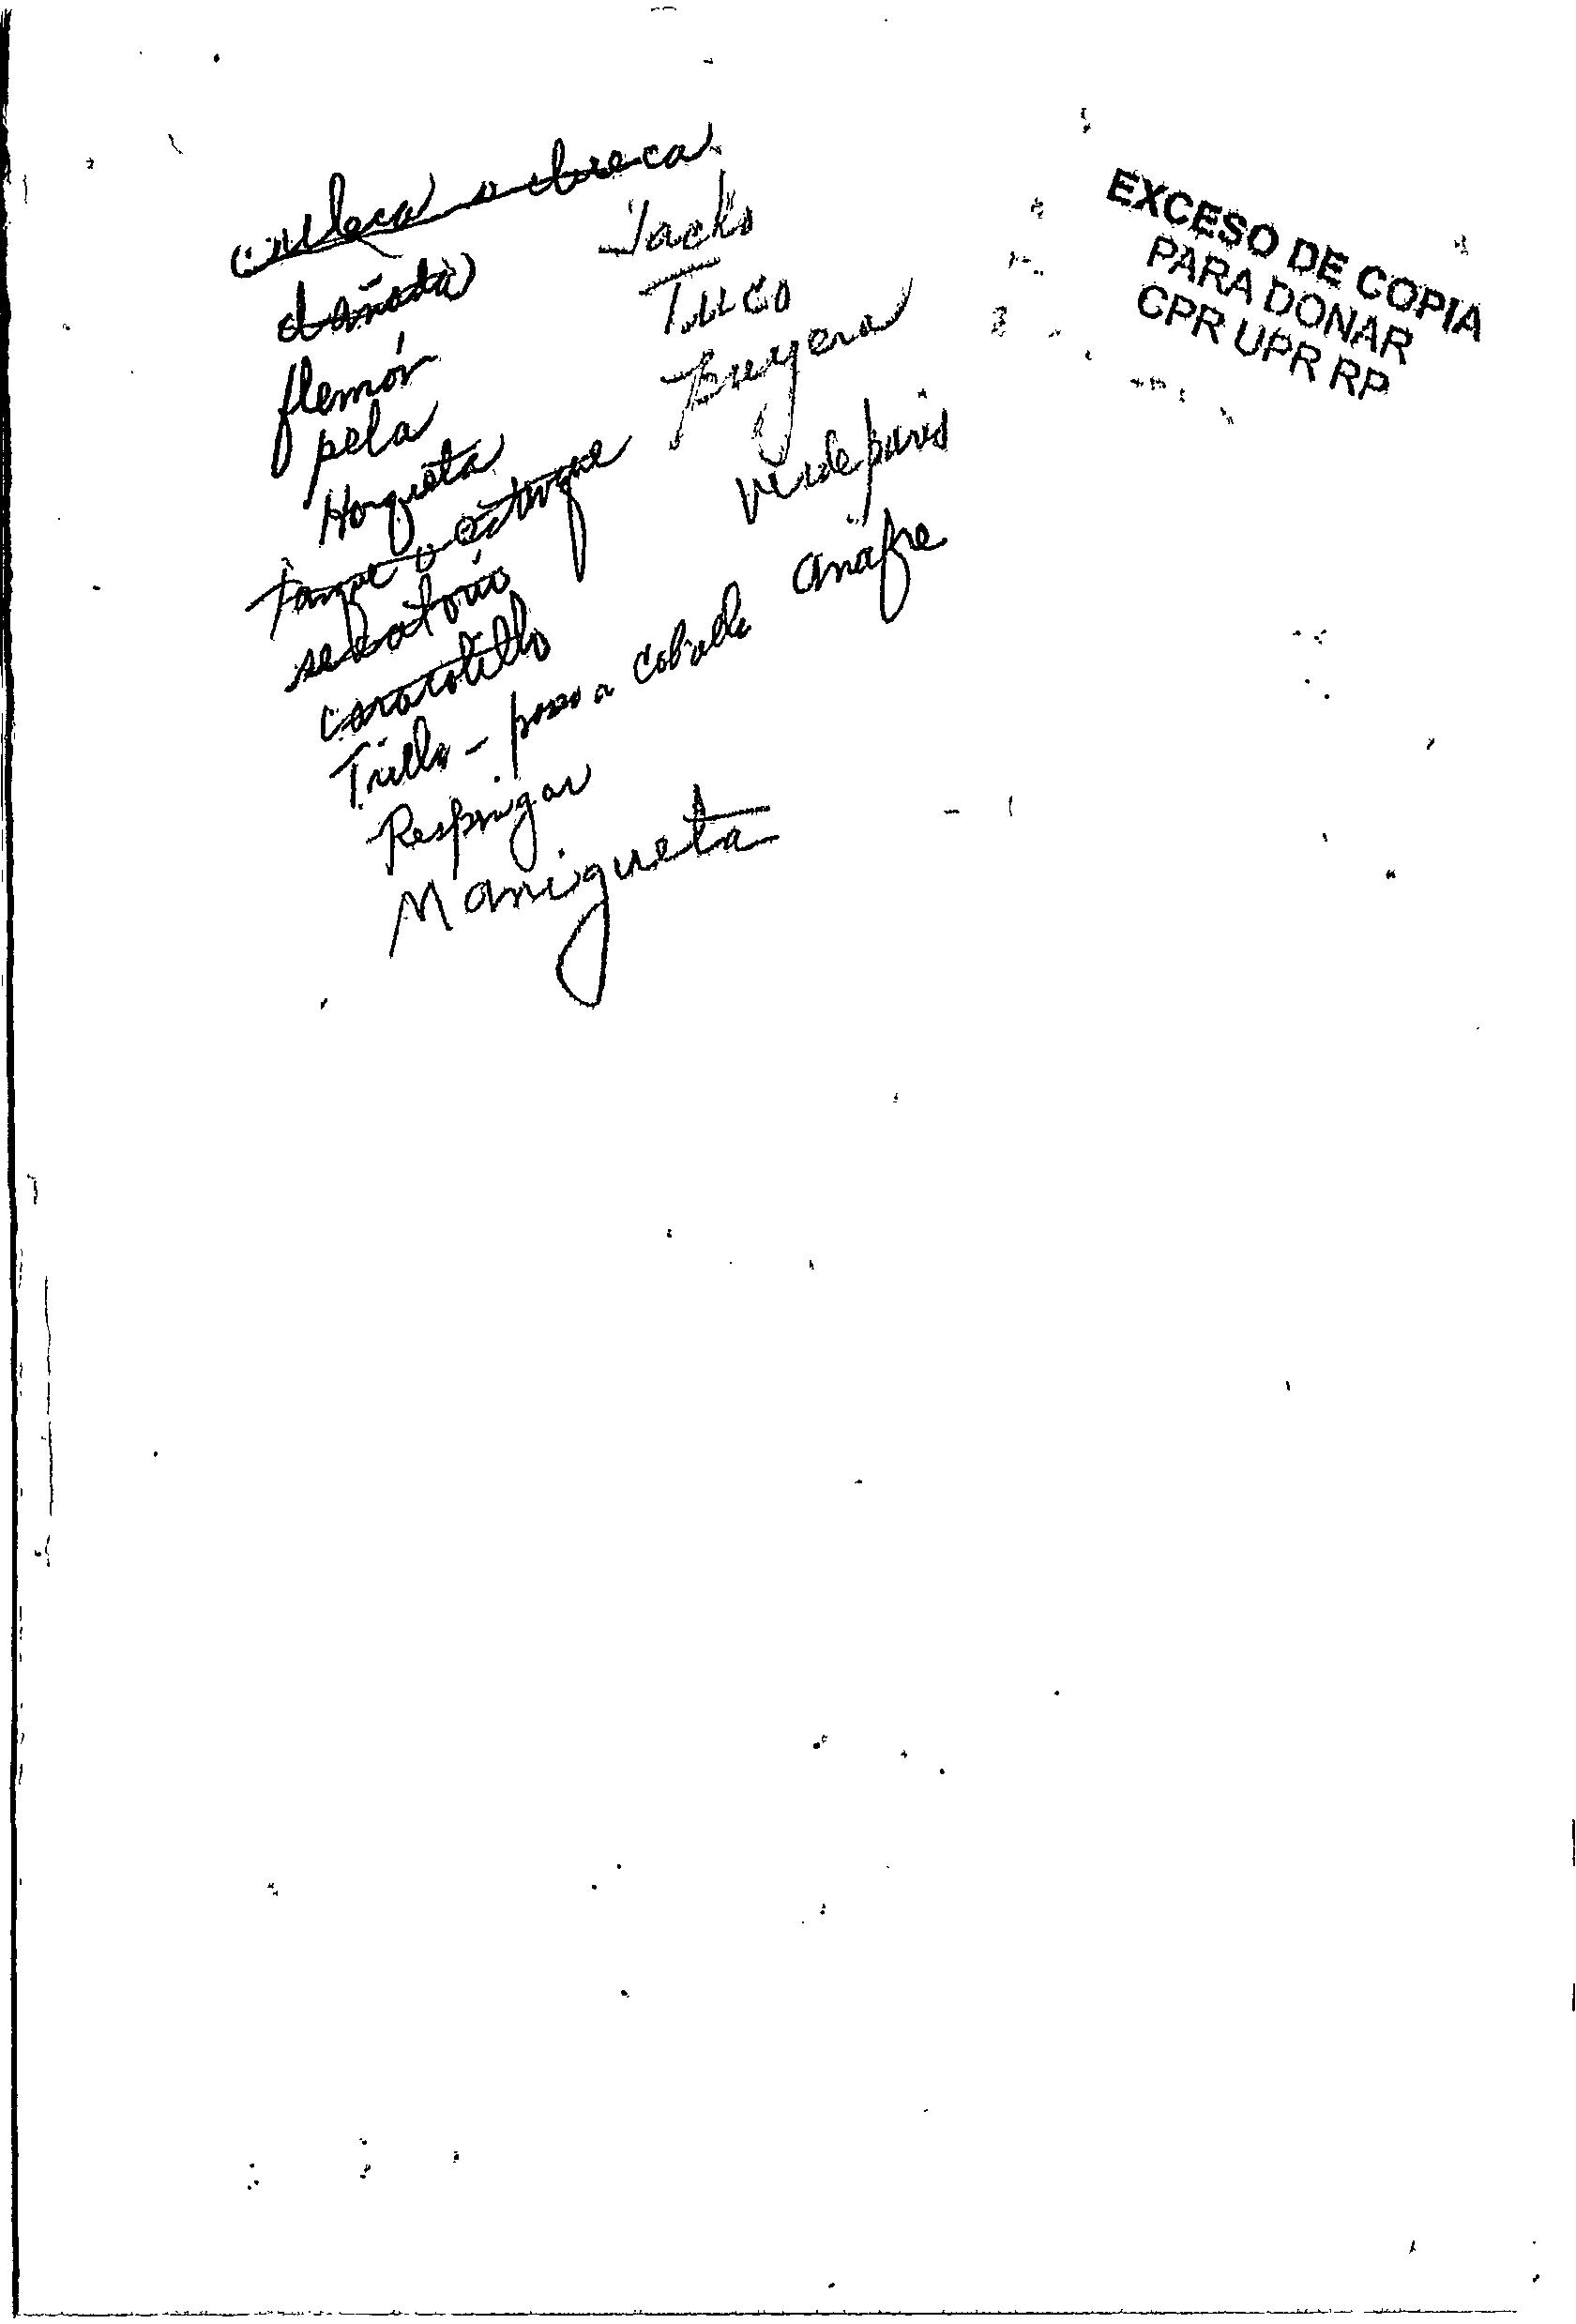 culeca o clueca
dañota
flemón
pela
Horqueta
Tanque o estanque
secatorio
caracolillo
Trillo - paso a caballo
Respingar
Manigueta
Tacho
Tuco
Buyera
verde paris
anafre
EXCESO DE COPIA
PARA DONAR
CPR UPR RP